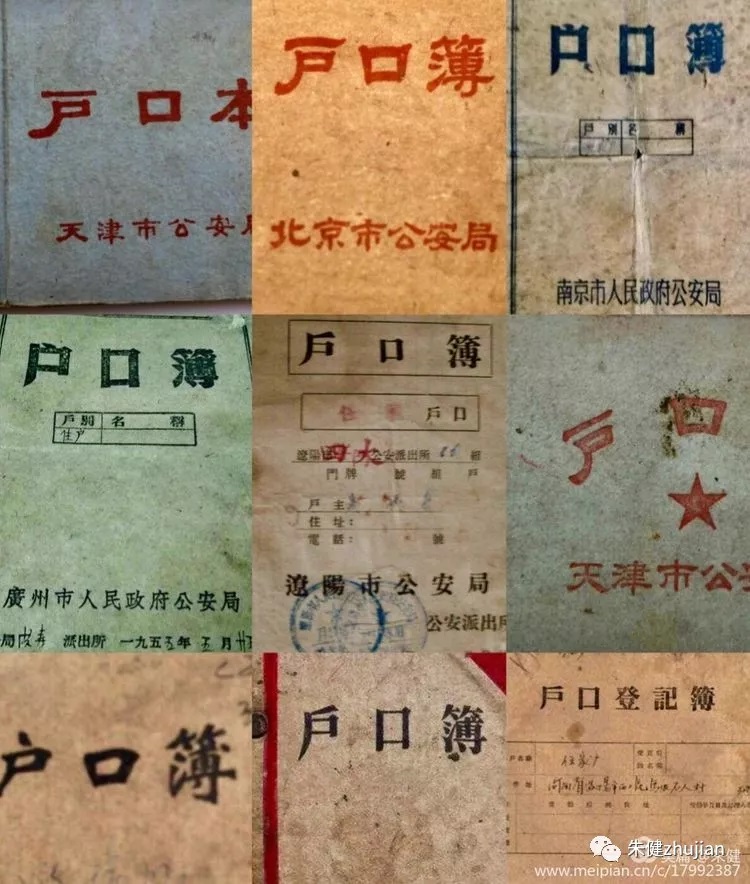 戶口本
天津市公安局
戶口簿
北京市公安局
户口簿
户別名稱
南京市人民政府公安局
户口簿
戶別 名 稱
住戶
廣州市人民政府公安局
派出所 一九五五年五月
戶口簿
戶口
遼陽 四大 公安派出所 組
門牌 號 組 戶
戶主:
住址:
電話: 號
遼陽市公安局
公安派出所
戶口
天津市公
户口簿
戶口簿
戶口登記簿
朱健zhujian
美篇 @朱健
www.meipian.cn/c/17992387